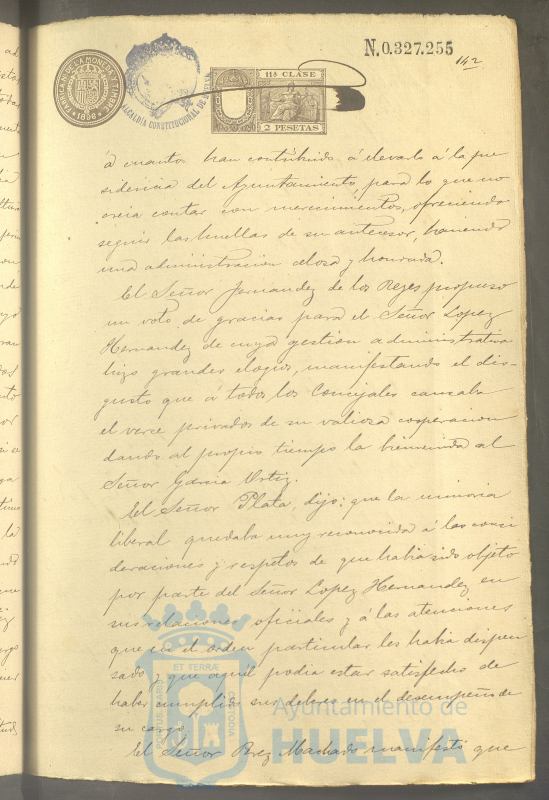 N.0.327.255
142
FABRICA N. DE LA MONEDA Y TIMBRE
1896
ALCALDÍA CONSTITUCIONAL DE HUELVA
11ª CLASE
2 PESETAS
á cuantos han contribuido á elevarlo á la pre
sidencia del Ayuntamiento, para lo que no
creia contar con merecimientos, ofreciendo
seguir las huellas de su antecesor, haciendo
una administracion celosa y honrada.
El Señor Fernandez de los Reyes propuso
un voto de gracias para el Señor Lopez
Hernandez de cuya gestion administrativa
hizo grandes elogios, manifestando el dis-
gusto que á todos los Concejales causaba
el verse privados de su valiosa cooperacion
dando al propio tiempo la bienvenida al
Señor Garcia Ortiz.
El Señor Plata, dijo: que la minoria
liberal quedaba muy reconocida á las consi
deraciones y respetos de que habia sido objeto
por parte del Señor Lopez Hernandez en
sus relaciones oficiales y á las atenciones
que en el orden particular les habia dispen
sado y que aquél podia estar satisfecho de
haber cumplido sus deberes en el desempeño de
su cargo.
El Señor Perez Machado manifestó que
PORTUS MARIS
ET TERRÆ
CUSTODIA
Ayuntamiento de
HUELVA